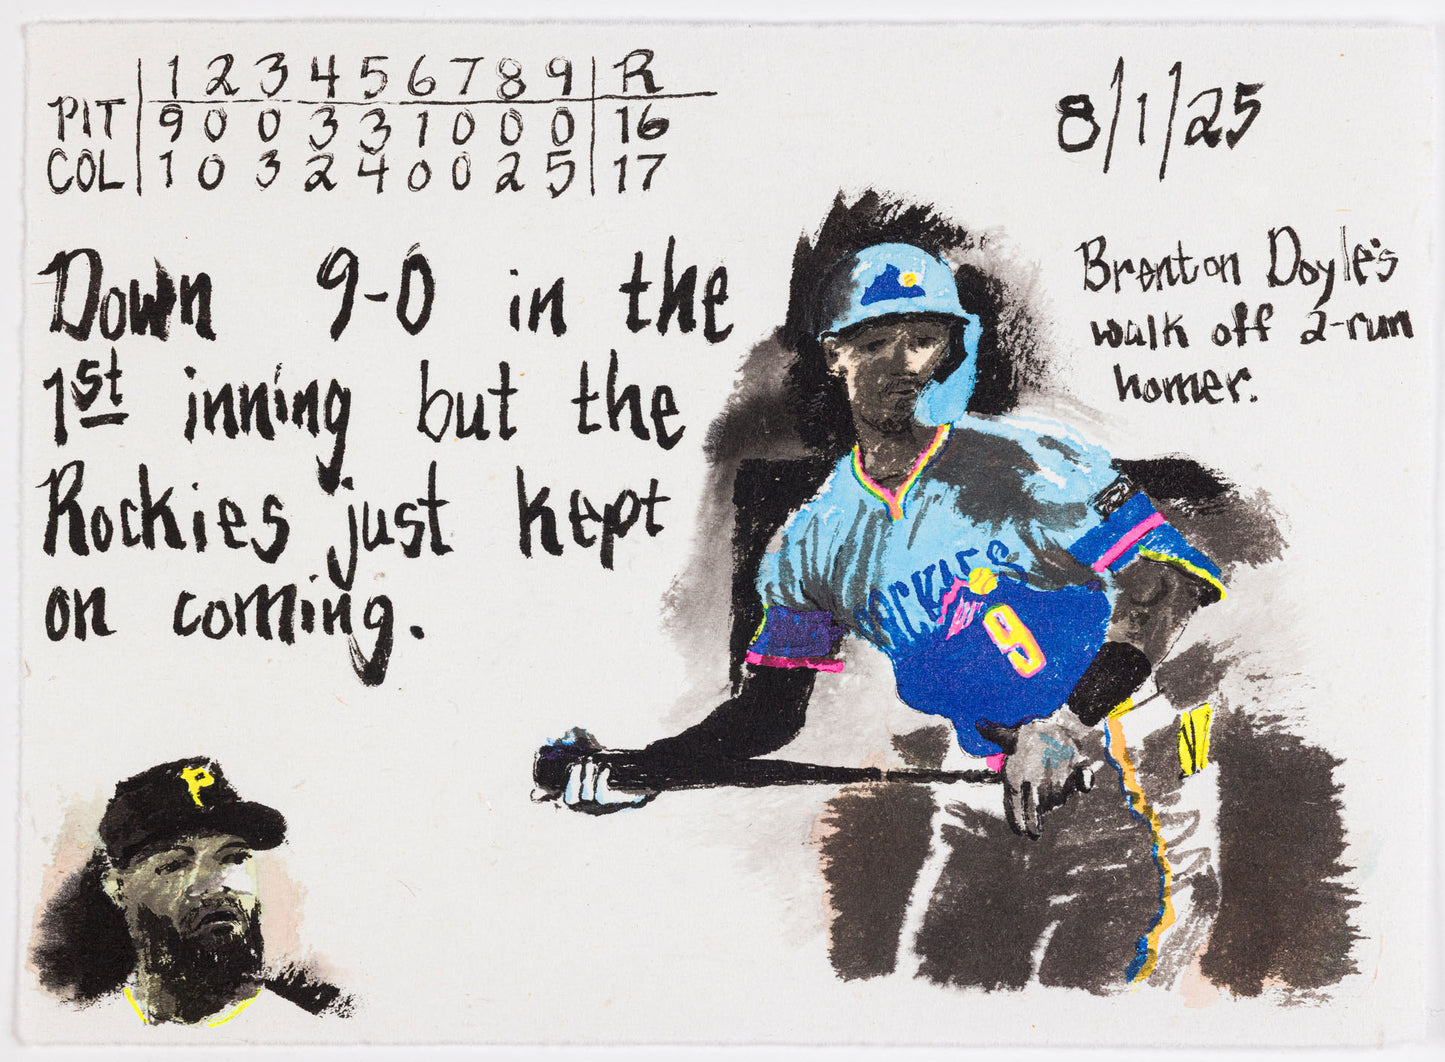 1 2 3 4 5 6 7 8 9 R
PIT 9 0 0 3 3 1 0 0 0 16
COL 1 0 3 2 4 0 0 2 5 17
8/1/25
Down 9-0 in the
1st inning but the
Rockies just kept
on coming.
Brenton Doyle's
walk off 2-run
homer.
P
ROCKIES
9